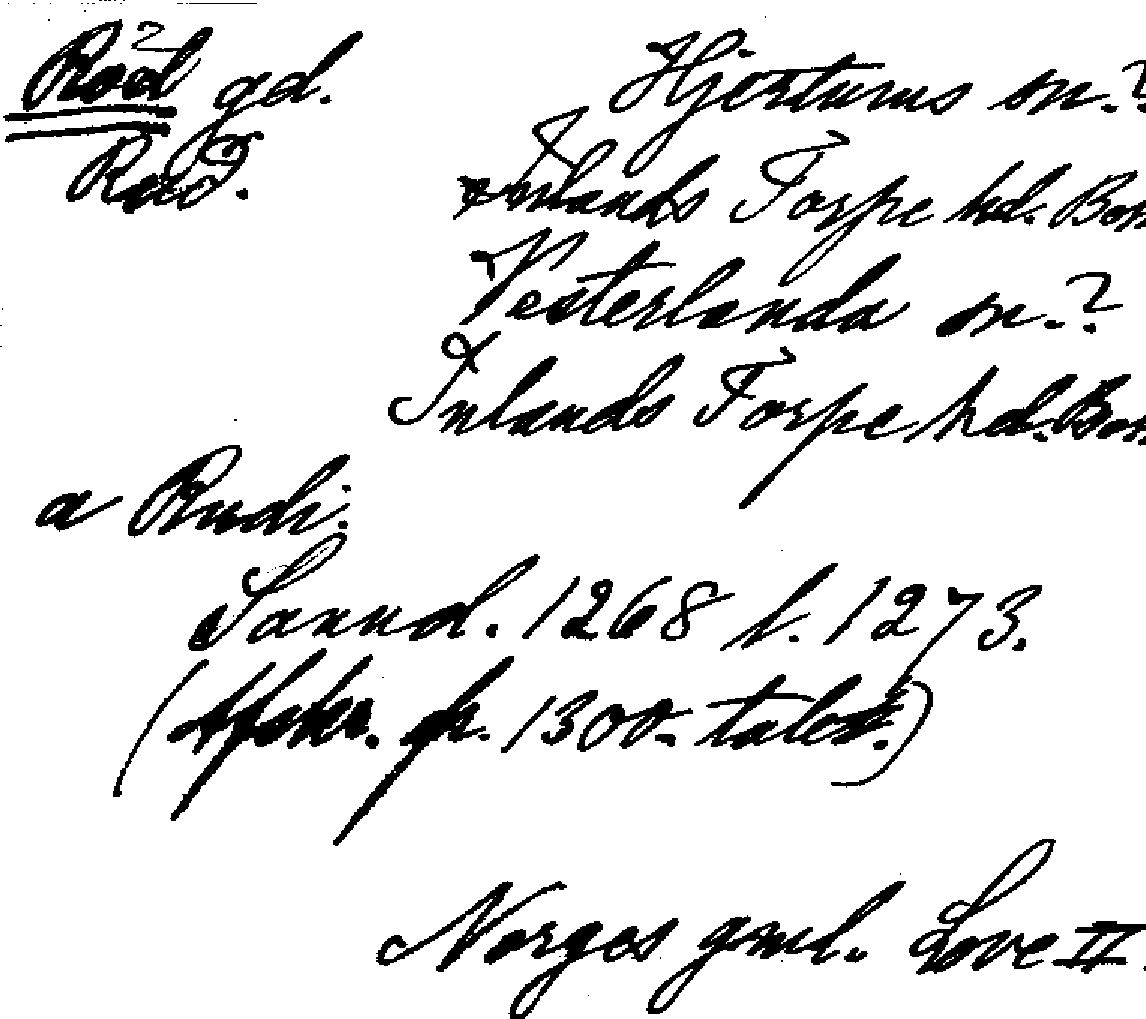 Röd gd. Hjertums sn.?
Rud? Inlands Torpe hd. Boh
Vesterlanda sn.?
Inlands Torpe hd. Boh
a Rudi.
Sannd. 1268 f. 1273.
(Afskr. fr. 1300-talet.)
Norges gml. Love II